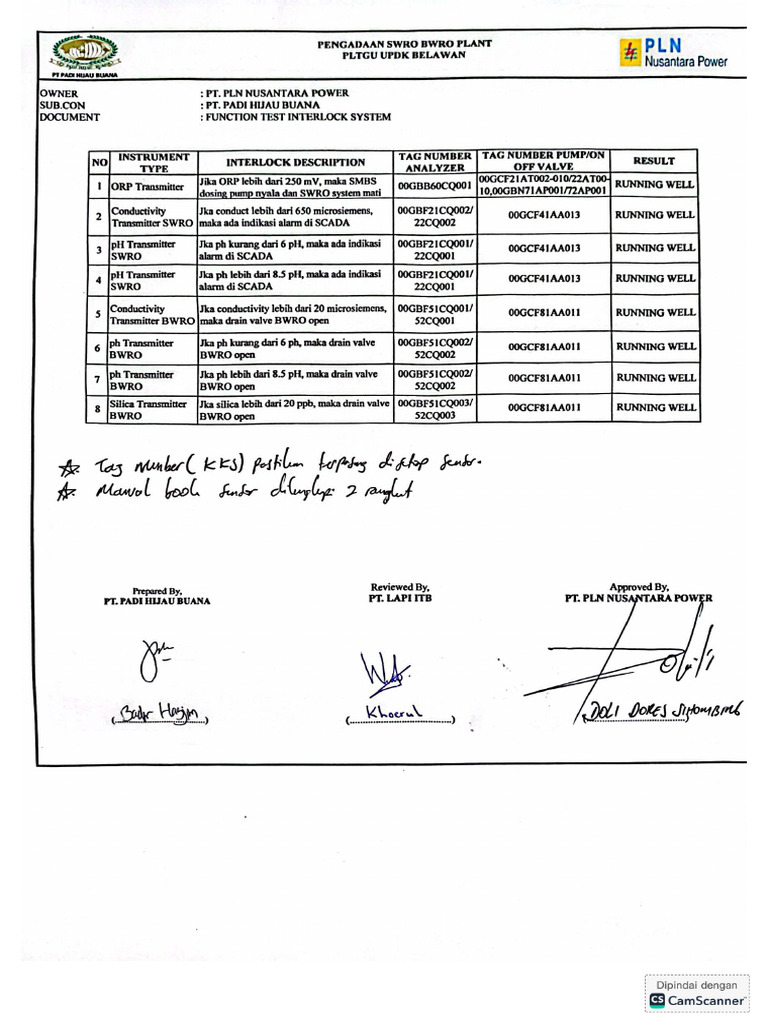 PENGADAAN SWRO BWRO PLANT
PLTGU UPDK BELAWAN
PT PADI HIJAU BUANA
PLN
Nusantara Power
OWNER : PT. PLN NUSANTARA POWER
SUB.CON : PT. PADI HIJAU BUANA
DOCUMENT : FUNCTION TEST INTERLOCK SYSTEM
NO INSTRUMENT TYPE INTERLOCK DESCRIPTION TAG NUMBER ANALYZER TAG NUMBER PUMP/ON OFF VALVE RESULT
1 ORP Transmitter Jika ORP lebih dari 250 mV, maka SMBS dosing pump nyala dan SWRO system mati 00GBB60CQ001 00GCF21AT002-010/22AT00-10,00GBN71AP001/72AP001 RUNNING WELL
2 Conductivity Transmitter SWRO Jka conduct lebih dari 650 microsiemens, maka ada indikasi alarm di SCADA 00GBF21CQ002/22CQ002 00GCF41AA013 RUNNING WELL
3 pH Transmitter SWRO Jka ph kurang dari 6 pH, maka ada indikasi alarm di SCADA 00GBF21CQ001/22CQ001 00GCF41AA013 RUNNING WELL
4 pH Transmitter SWRO Jka ph lebih dari 8.5 pH, maka ada indikasi alarm di SCADA 00GBF21CQ001/22CQ001 00GCF41AA013 RUNNING WELL
5 Conductivity Transmitter BWRO Jka conductivity lebih dari 20 microsiemens, maka drain valve BWRO open 00GBF51CQ001/52CQ001 00GCF81AA011 RUNNING WELL
6 ph Transmitter BWRO Jka ph kurang dari 6 ph, maka drain valve BWRO open 00GBF51CQ002/52CQ002 00GCF81AA011 RUNNING WELL
7 ph Transmitter BWRO Jka ph lebih dari 8.5 pH, maka drain valve BWRO open 00GBF51CQ002/52CQ002 00GCF81AA011 RUNNING WELL
8 Silica Transmitter BWRO Jka silica lebih dari 20 ppb, maka drain valve BWRO open 00GBF51CQ003/52CQ003 00GCF81AA011 RUNNING WELL
Tag Number (KKS) pastikan terpasang disetiap Sensor.
Manual book Sensor dilengkapi 2 rangkap
Prepared By, Reviewed By, Approved By,
PT. PADI HIJAU BUANA PT. LAPI ITB PT. PLN NUSANTARA POWER
(Badar) (Khoerul) (DOLI DORES SIHOMBING
Dipindai dengan
CS CamScanner